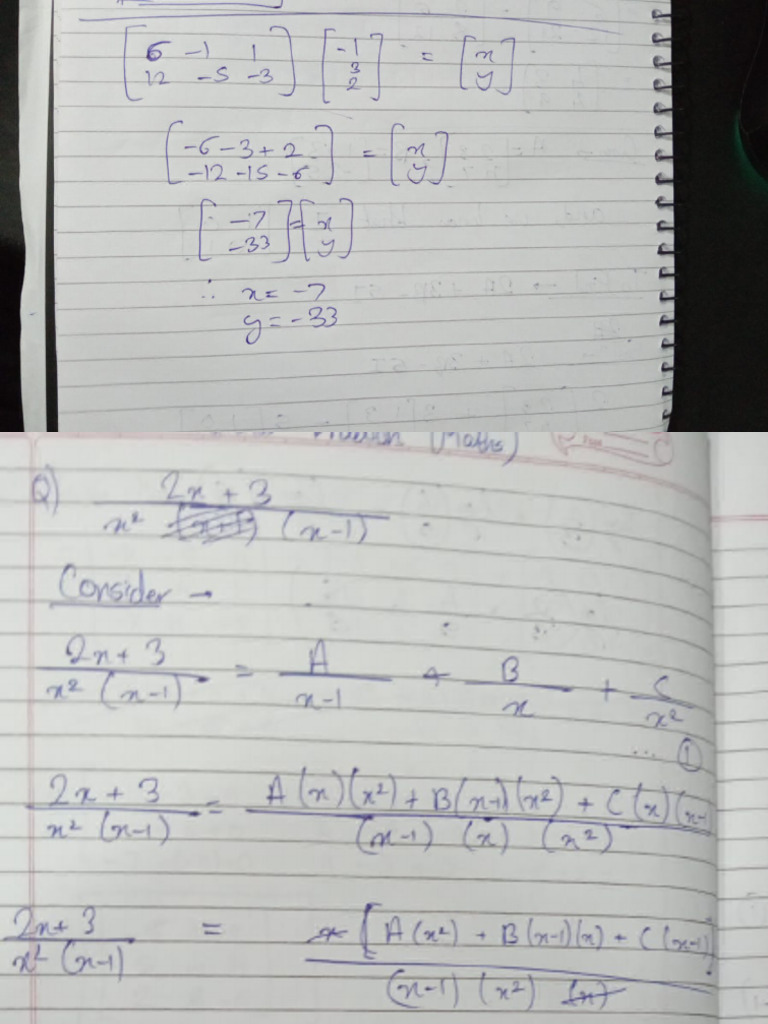 [ 6 -1 1 ] [ -1 ] = [ x ]
[ 12 -5 -3 ] [ 3 ] [ y ]
[ 2 ]
[ -6 - 3 + 2 ] = [ x ]
[ -12 - 15 - 6 ] [ y ]
[ -7 ] = [ x ]
[ -33 ] [ y ]
∴ x = -7
y = -33
(Maths)
Q) 2x + 3
x² (x-1)
Consider →
2x + 3 / x² (x-1) = A / x-1 + B / x + C / x²
... ①
2x + 3 / x² (x-1) = A(x)(x²) + B(x-1)(x²) + C(x)(x-1 / (x-1) (x) (x²)
2x + 3 / x² (x-1) = x [ A(x²) + B(x-1)(x) + C(x-1) ] / (x-1) (x²) (x)